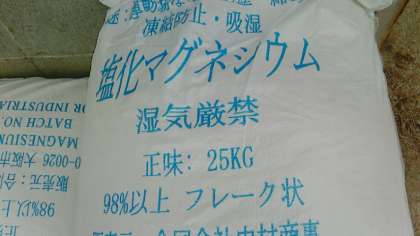 凍結防止・吸湿
塩化マグネシウム
湿気厳禁
正味: 25KG
98%以上 フレーク状
合同会社中村商事
OR INDUSTRIA
BATCH NO.
MAGNESIUM
0-0026 大阪市
販売元: 合同
98%以上
正